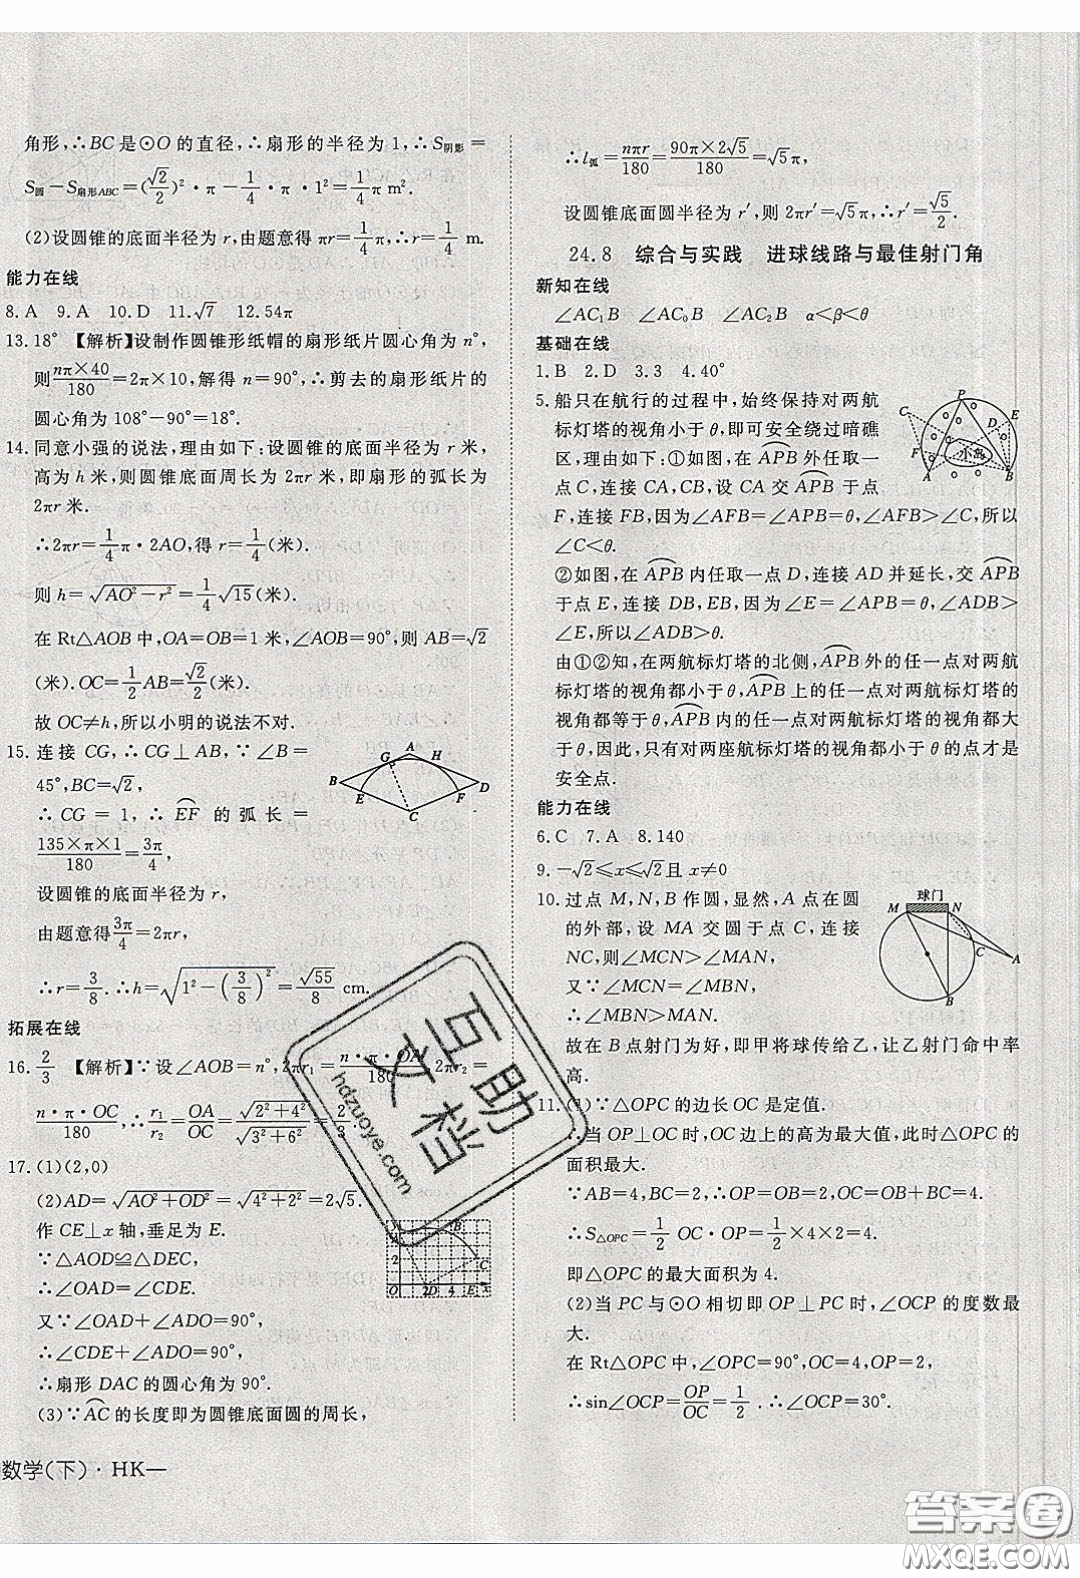 角形,∴BC是⊙O的直径,∴扇形的半径为1,∴S阴影=
S圆-S扇形ABC=(√2/2)²·π-1/4·π·1²=1/4π m².
(2)设圆锥的底面半径为r,由题意得πr=1/4π,∴r=1/4 m.
能力在线
8.A 9.A 10.D 11.√7 12.54π
13.18° 【解析】设制作圆锥形纸帽的扇形纸片圆心角为n°,
则nπ×40/180=2π×10,解得n=90°,∴剪去的扇形纸片的
圆心角为108°-90°=18°.
14.同意小强的说法,理由如下:设圆锥的底面半径为r米,
高为h米,则圆锥底面周长为2πr米,即扇形的弧长为
2πr米.
∴2πr=1/4π·2AO,得r=1/4(米).
则h=√(AO²-r²)=1/4√15(米).
在Rt△AOB中,OA=OB=1米,∠AOB=90°,则AB=√2
(米).OC=1/2AB=√2/2(米).
故OC≠h,所以小明的说法不对.
15.连接CG,∴CG⊥AB,∵∠B=
45°,BC=√2,
∴CG=1,∴EF的弧长=
135×π×1/180=3π/4,
设圆锥的底面半径为r,
由题意得3π/4=2πr,
∴r=3/8.∴h=√(1²-(3/8)²)=√55/8 cm.
A
G H
B D
E F
C
拓展在线
16.2/3 【解析】∵设∠AOB=n°,2πr₁=n·π·OA/180,2πr₂=
n·π·OC/180,∴r₁/r₂=OA/OC=√(2²+4²)/√(3²+6²)=2/3.
17.(1)(2,0)
(2)AD=√(AO²+OD²)=√(4²+2²)=2√5.
作CE⊥x轴,垂足为E.
∵△AOD≌△DEC,
∴∠OAD=∠CDE.
又∵∠OAD+∠ADO=90°,
∴∠CDE+∠ADO=90°,
∴扇形DAC的圆心角为90°.
(3)∵AC的长度即为圆锥底面圆的周长,
A B
2 C
O 2D 4 E x
数学(下)·HK—
∴l弧=nπr/180=90π×2√5/180=√5π,
设圆锥底面圆半径为r′,则2πr′=√5π,∴r′=√5/2.
24.8 综合与实践 进球线路与最佳射门角
新知在线
∠AC₁B ∠AC₀B ∠AC₂B α<β<θ
基础在线
1.B 2.D 3.3 4.40°
5.船只在航行的过程中,始终保持对两航
标灯塔的视角小于θ,即可安全绕过暗礁
区,理由如下:①如图,在APB外任取一
点C,连接CA,CB,设CA交APB于点
F,连接FB,因为∠AFB=∠APB=θ,∠AFB>∠C,所以
∠C<θ.
②如图,在APB内任取一点D,连接AD并延长,交APB
于点E,连接DB,EB,因为∠E=∠APB=θ,∠ADB>
∠E,所以∠ADB>θ.
由①②知,在两航标灯塔的北侧,APB外的任一点对两航
标灯塔的视角都小于θ,APB上的任一点对两航标灯塔的
视角都等于θ,APB内的任一点对两航标灯塔的视角都大
于θ,因此,只有对两座航标灯塔的视角都小于θ的点才是
安全点.
P
C D E
F 小岛
A B
能力在线
6.C 7.A 8.140
9.-√2≤x≤√2且x≠0
10.过点M,N,B作圆,显然,A点在圆
的外部,设MA交圆于点C,连接
NC,则∠MCN>∠MAN,
又∵∠MCN=∠MBN,
∴∠MBN>MAN.
故在B点射门为好,即甲将球传给乙,让乙射门命中率
高.
球门
M N
C
A
B
11.(1)∵△OPC的边长OC是定值.
∴当OP⊥OC时,OC边上的高为最大值,此时△OPC的
面积最大.
∵AB=4,BC=2,∴OP=OB=2,OC=OB+BC=4.
∴S△OPC=1/2 OC·OP=1/2×4×2=4.
即△OPC的最大面积为4.
(2)当PC与⊙O相切即OP⊥PC时,∠OCP的度数最
大.
在Rt△OPC中,∠OPC=90°,OC=4,OP=2,
∴sin∠OCP=OP/OC=1/2.∴∠OCP=30°.
互助文档
hdzuoye.com
答案圈
MXQE.COM